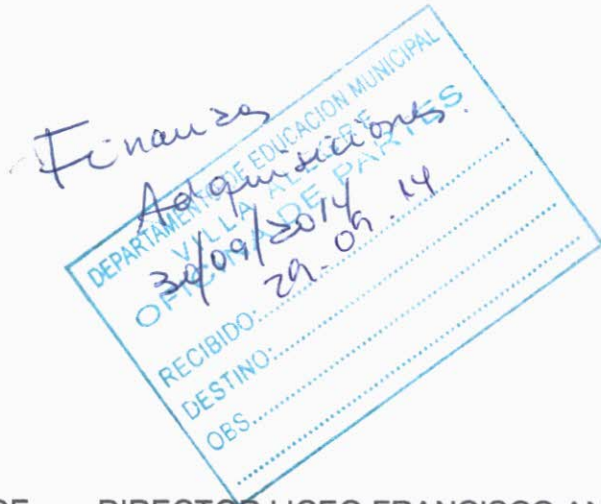 Finanzas
Adquisiciones.
30/09/2014
DEPARTAMENTO DE EDUCACION MUNICIPAL
VILLA ALEGRE
OFICINA DE PARTES
RECIBIDO: 29.09.14
DESTINO:
OBS.
DE DIRECTOR LICEO FRANCISCO AN